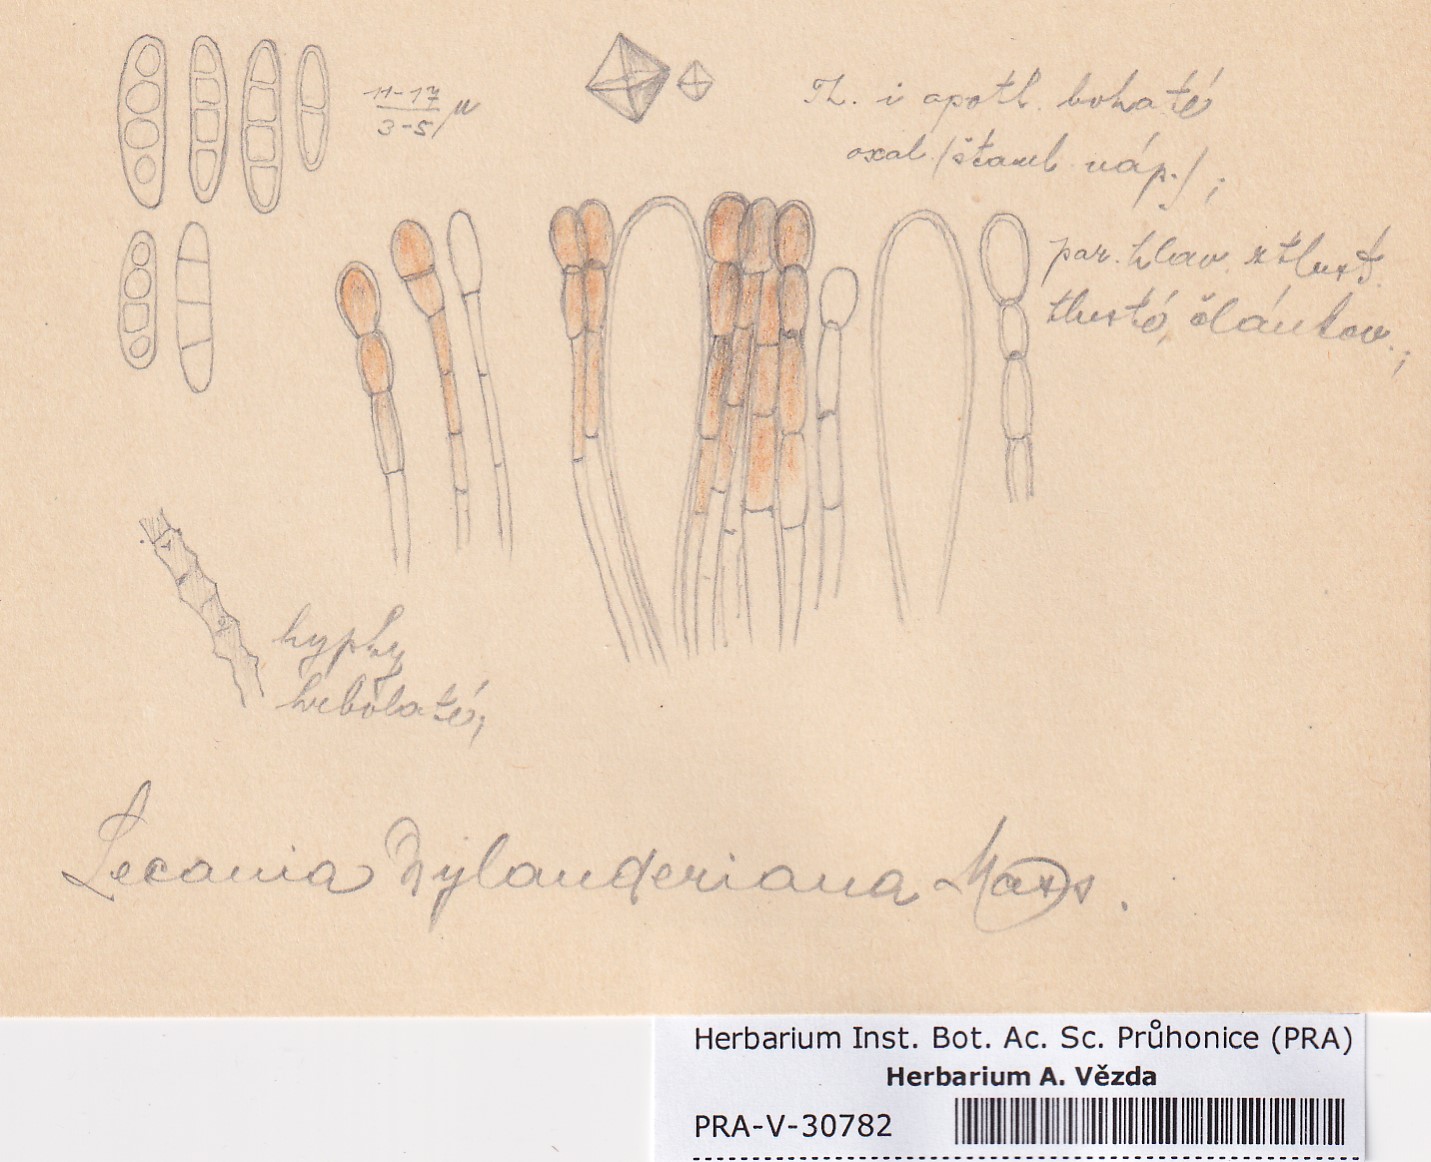 11-17
3-5 µ
Th. i apoth. bohaté
oxal. /štavel. náp./;
par. hlav. ztlust.
tlusté, článkov.;
hyphy
hrbolaté;
Lecania Nylanderiana Mass.
Herbarium Inst. Bot. Ac. Sc. Průhonice (PRA)
Herbarium A. Vězda
PRA-V-30782